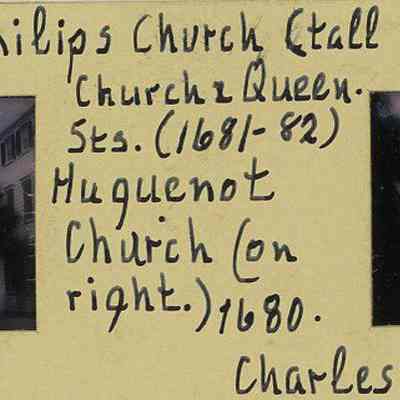 hilips Church (tall
Church & Queen.
Sts. (1681-82)
Huguenot
Church (on
right.) 1680.
Charles